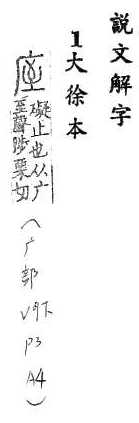 說文解字
1大徐本
庢
礙止也从广
至聲陟栗切
(广部 V9下 P3 A4)